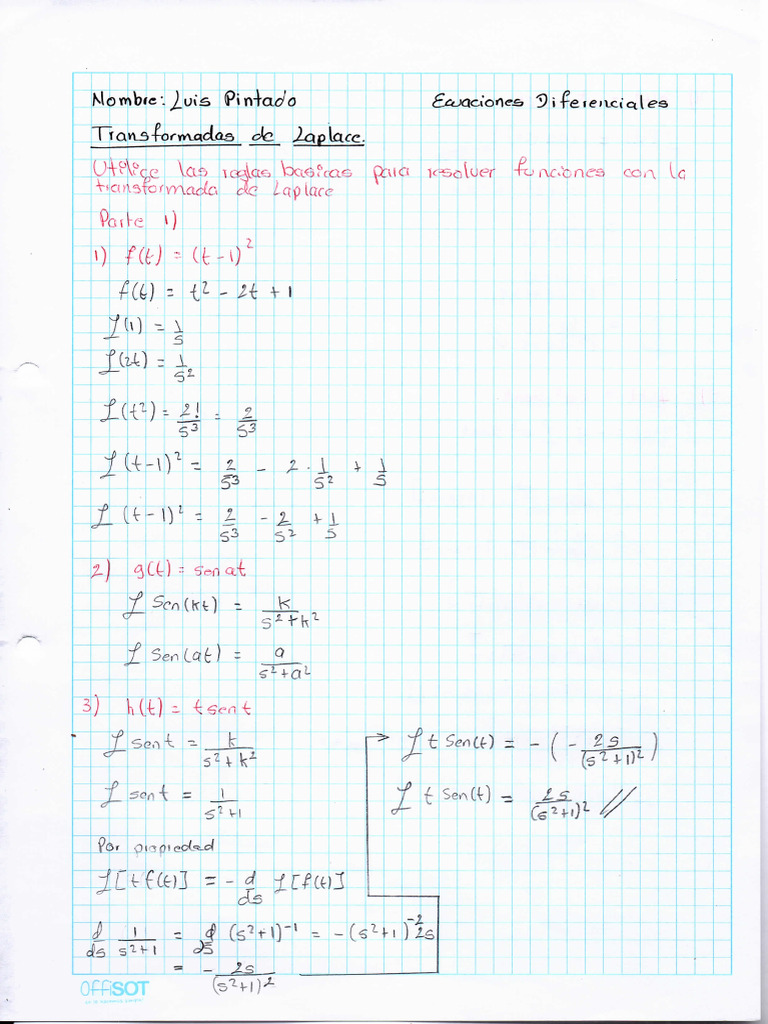 Nombre: Luis Pintado Ecuaciones Diferenciales
Transformadas de Laplace.
Utilice las reglas basicas para resolver funciones con la
transformada de Laplace
Parte 1)
1) f(t) = (t-1)^2
f(t) = t^2 - 2t + 1
ℒ(1) = 1/s
ℒ(2t) = 1/s^2
ℒ(t^2) = 2!/s^3 = 2/s^3
ℒ(t-1)^2 = 2/s^3 - 2 · 1/s^2 + 1/s
ℒ (t-1)^2 = 2/s^3 - 2/s^2 + 1/s
2) g(t) = sen at
ℒ Sen(kt) = k/(s^2+k^2)
ℒ Sen(at) = a/(s^2+a^2)
3) h(t) = t sen t
ℒ sen t = k/(s^2+k^2)
ℒ sen t = 1/(s^2+1)
Por propiedad
ℒ[t f(t)] = - d/ds ℒ[f(t)]
d/ds 1/(s^2+1) = d/ds (s^2+1)^-1 = -(s^2+1)^-2 2s
= - 2s/(s^2+1)^2
ℒ t Sen(t) = - (- 2s/(s^2+1)^2)
ℒ t Sen(t) = 2s/(s^2+1)^2 //
OffiSOT